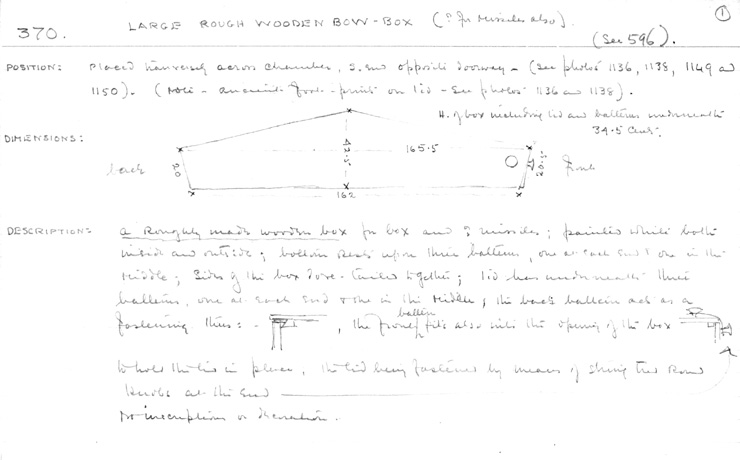 ①
370. LARGE ROUGH WOODEN BOW-BOX (? for missiles also).
(See 596).
POSITION: Placed transversely across chamber, S. end opposite doorway - (see photos 1136, 1138, 1149 and
1150). (Note - ancient foot-print on lid - see photos 1136 and 1138).
H. of box including lid and battens underneath
34.5 cent.
DIMENSIONS:
back 20 43.5 165.5 20.5 front
162
DESCRIPTION: A Roughly made wooden box for box and ? missiles; painted white both
inside and outside; bottom rests upon three battens, one at each end & one in the
middle; sides of the box dove-tailed together; lid has underneath three
battens, one at each end & one in the middle; the back batten act as a
fastening thus: - , the front batten fits also into the opening of the box
to hold the lid in place, the lid being fastened by means of string tied round
knobs at the end
No inscriptions or decoration.